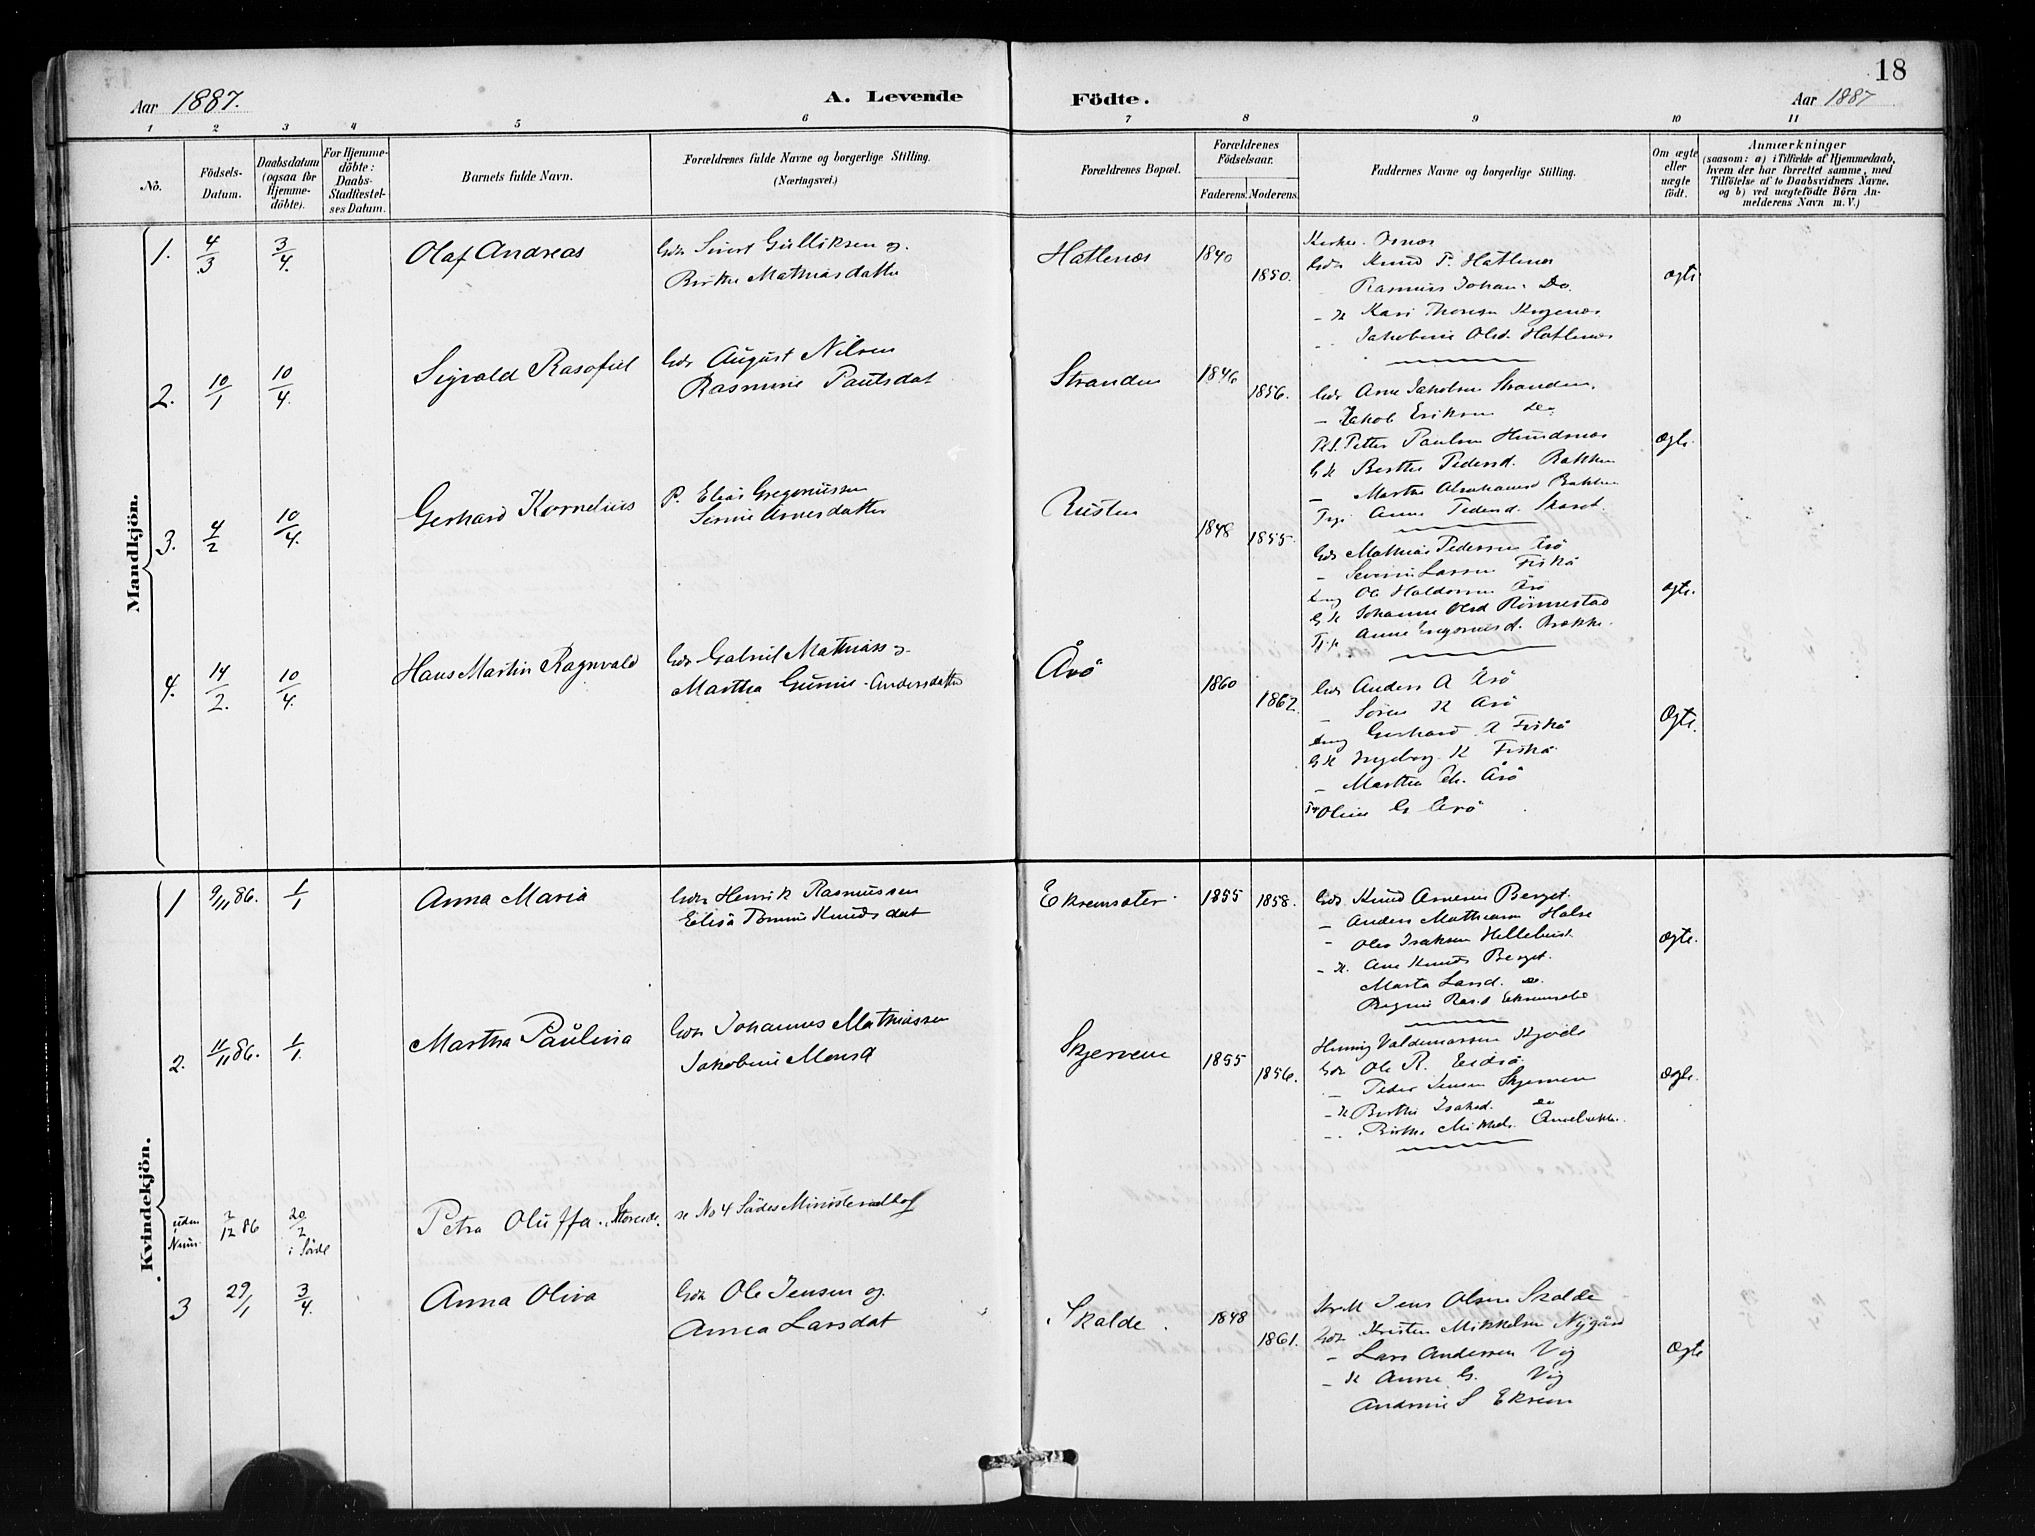 18
Aar 1887. A. Levende Födte. Aar 1887
1 2 3 4 5 6 7 8 9 10 11
No. Födsels-Datum. Daabsdatum (ogsaa for Hjemme-döbte). For Hjemme-döbte: Daabs-Stadfæstel-ses Datum. Barnets fulde Navn. Forældrenes fulde Navne og borgerlige Stilling. (Næringsvei.) Forældrenes Bopæl. Forældrenes Födselsaar. Faderens. Moderens. Faddernes Navne og borgerlige Stilling. Om ægte eller uægte födt. Anmærkninger (saasom: a) i Tilfælde af Hjemmedaab, hvem der har forrettet samme, med Tilföielse af to Daabsvidners Navne, og b) ved uægtefödte Börn An-melderens Navn m. V.)
Mandkjön.
1. 4/3 3/4. Olaf Andreas Gdr Sivert Gulliksen og
Birthe Mathiasdatter
Hatlenæs 1840 1850.
Gdr Knud P. Hatlenæs
Rasmus Johan Do.
Jakobine Olsd. Hatlenæs
ægte
2. 10/1 10/4. Sigvald Rasofiel Gdr August Nilsen
Rasmine Paulsdat
Stranden 1846 1856.
Gdr Arne Jakobsen Stranden.
– Jakob Eriksen Do
Petter Paulsen Hundsnæs
G K Berthe Pedersd. Bakken
– Martha Abrahamsd Bakken
Anne Pedersd. Skaret
ægte.
3. 4/2 10/4. Gerhard Kornelius P. Elias Gregoriussen
Serine Arnesdatter
Rusten 1848 1855.
Gdr Mathias Pedersen Årö
– Severin Larsen Fiskå
Ung Ole Haldorsen Årö
G K Johanne Olsd Rönnestad
Anne Gregoriusd. Brække.
ægte.
4. 14/2. 10/4. Hans Martin Ragnvald Gdr Gabriel Mathias og
Martha Gurine Andersdatter
Årö 1860 1862.
Gdr Anders A Årö
– Sören K Årö
Ung Gerhard A Fiskå
G K Ingeborg K Fiskå
– Martha Årö
Oline G Årö
Ægte.
Kvindekjön.
1 9/11 86. 1/1 Anna Maria Gdr Henrik Rasmussen
Elisa Knudsdat
Ekremsæter 1855 1858.
Gdr Knud Arnesen Berget
– Anders Mathiasen Halse
– Ole Isaksen Hellebust.
– K. Ane Knuds Berget.
Marta Larsd. Do.
Ras.d Ekremsæter
Ægte.
2. 11/11 86. 1/1 Martha Paulina Gdr Johannes Mathiassen
Jakobine Monsd
Skjervene 1855 1856.
Henrig Valdemarsen Kjøde
Gdr Ole R. Eidså.
– Peder Jensen Skjervene
– K Berthe Isaksd. Do
Birthe Mikkels.
Ægte.
uden Num. 2/12 86 20/2 i Sövde Petra Oluffa. Storeide. se No 4 Södes Ministerialbog
3 29/1 3/4. Anna Oliva Gdr Ole Jensen og
Anna Larsdat
Skalde. 1848 1861.
Jens Olsen Skalde
Gdr Kristen Mikkelsen Nygård
– Lars Andersen Vig
– K Anne G. Vig
Andrine S Ekrem
Ægte